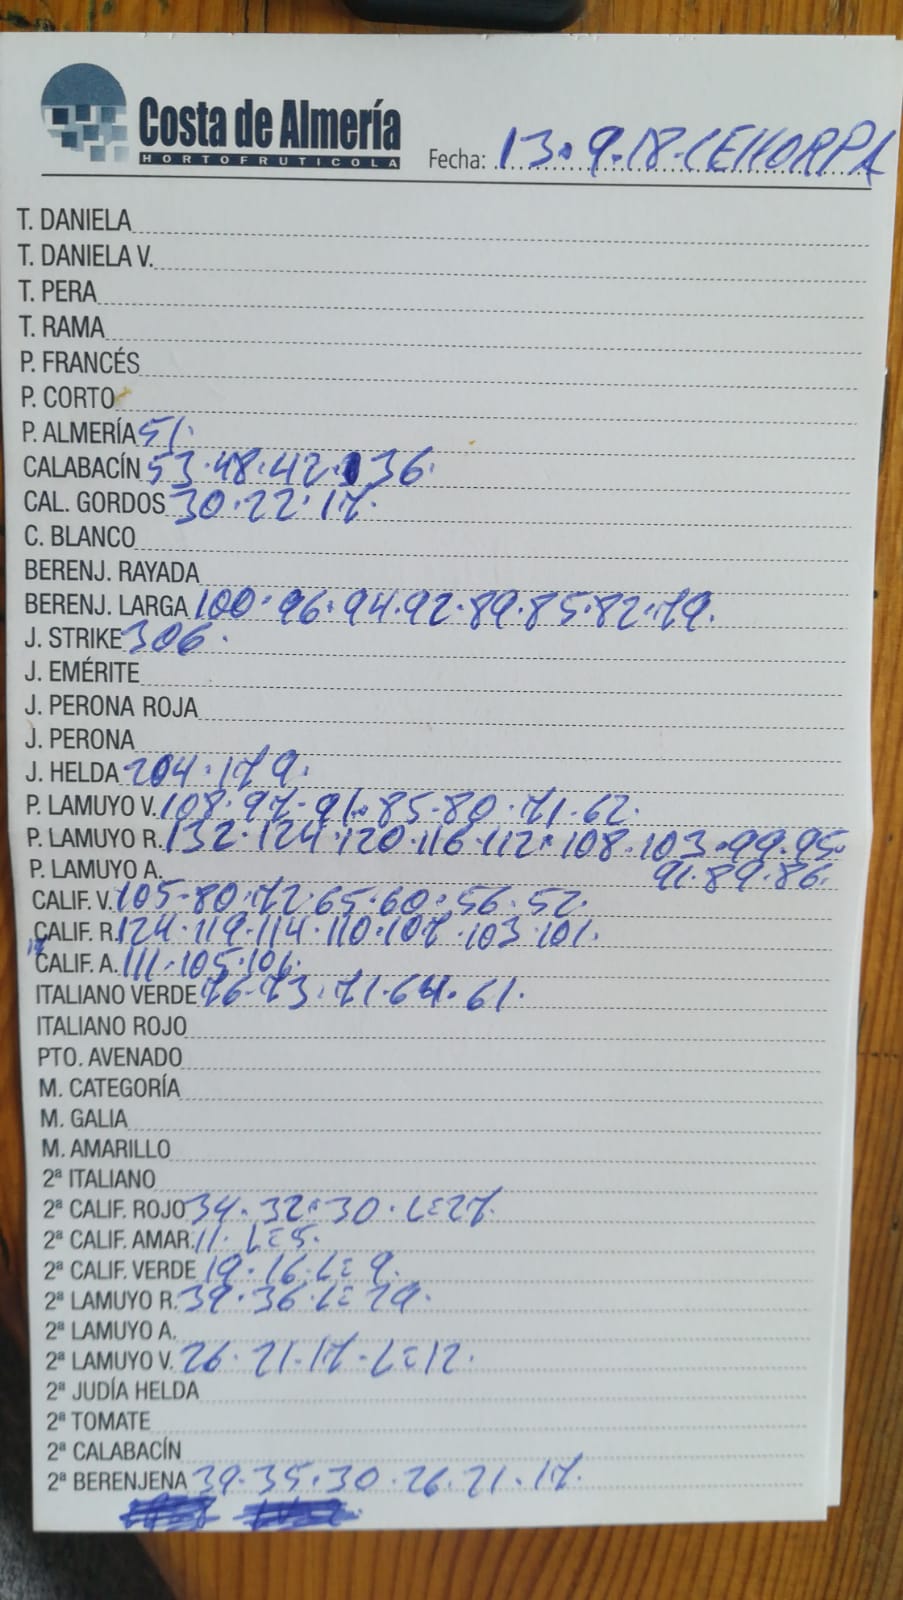 Costa de Almería
HORTOFRUTICOLA
Fecha: 13.9.18.CEHORPA
T. DANIELA
T. DANIELA V.
T. PERA
T. RAMA
P. FRANCÉS
P. CORTO
P. ALMERÍA 51.
CALABACÍN 53.48.42.36.
CAL. GORDOS 30.22.17.
C. BLANCO
BERENJ. RAYADA
BERENJ. LARGA 100.96.94.92.89.85.82.79.
J. STRIKE 306.
J. EMÉRITE
J. PERONA ROJA
J. PERONA
J. HELDA 204.179.
P. LAMUYO V. 108.97.91.85.80.71.62.
P. LAMUYO R. 132.124.120.116.112.108.103.99.95.
P. LAMUYO A. 91.89.86.
CALIF. V. 105.80.72.65.60.56.52.
CALIF. R. 124.119.114.110.107.103.101.
CALIF. A. 111.105.101.
ITALIANO VERDE 76.73.71.64.61.
ITALIANO ROJO
PTO. AVENADO
M. CATEGORÍA
M. GALIA
M. AMARILLO
2ª ITALIANO
2ª CALIF. ROJO 34.32.30.LE27.
2ª CALIF. AMAR. 11.LE5.
2ª CALIF. VERDE 19.16.LE9.
2ª LAMUYO R. 39.36.LE29.
2ª LAMUYO A.
2ª LAMUYO V. 26.21.17.LE12.
2ª JUDÍA HELDA
2ª TOMATE
2ª CALABACÍN
2ª BERENJENA 39.35.30.26.21.17.